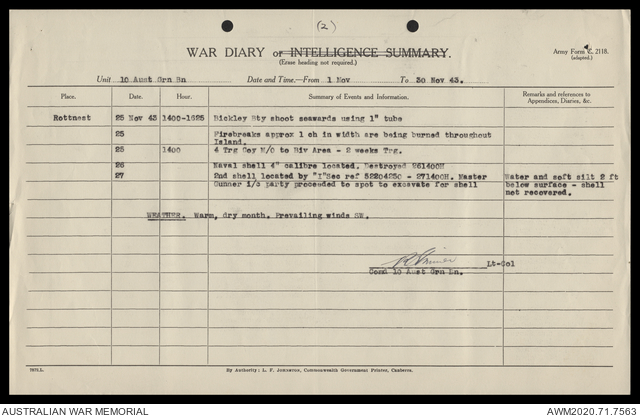 (2)
WAR DIARY or INTELLIGENCE SUMMARY.
(Erase heading not required.)
Army Form C. 2118.
(adapted.)
Unit 10 Aust Grn Bn Date and Time.—From 1 Nov To 30 Nov 43.
Place. Date. Hour. Summary of Events and Information. Remarks and references to Appendices, Diaries, &c.
Rottnest 25 Nov 43 1400-1625 Bickley Bty shoot seawards using 1" tube
25 Firebreaks approx 1 ch in width are being burned throughout
Island.
25 1400 4 Trg Coy M/O to Biv Area - 2 weeks Trg.
26 Naval shell 4" calibre located. Destroyed 261400H
27 2nd shell located by "I"Sec ref 52204230 - 271400H. Master Water and soft silt 2 ft
Gunner i/c party proceeded to spot to excavate for shell below surface - shell
not recovered.
WEATHER. Warm, dry month. Prevailing winds SW.
Lt-Col
Comd 10 Aust Grn Bn.
By Authority: L. F. JOHNSTON, Commonwealth Government Printer, Canberra.
AUSTRALIAN WAR MEMORIAL AWM2020.71.7563